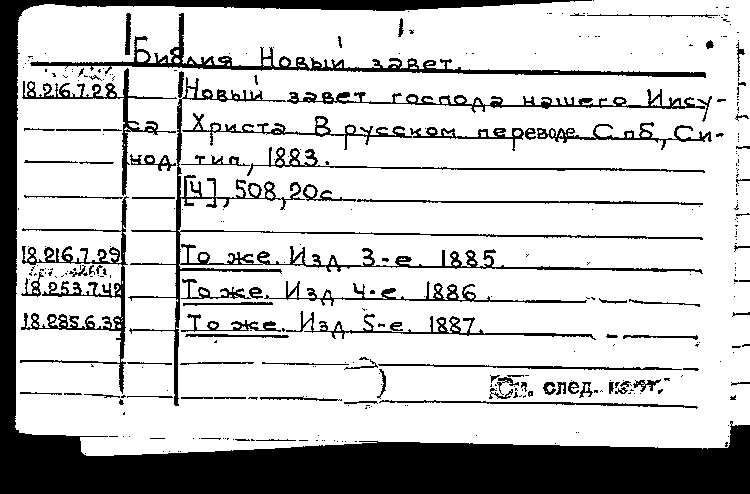 1.
Библия Новый завет.
18.216.7.28 Новый завет господа нашего Иису-
са Христа В русском переводе. Спб., Си-
нод. тип., 1883.
[4], 508, 20с.
18.216.7.29 То же. Изд. 3-е. 1885.
18.253.7.42 То же. Изд. 4-е. 1886.
18.285.6.38 То же. Изд. 5-е. 1887.
См. след. карт.